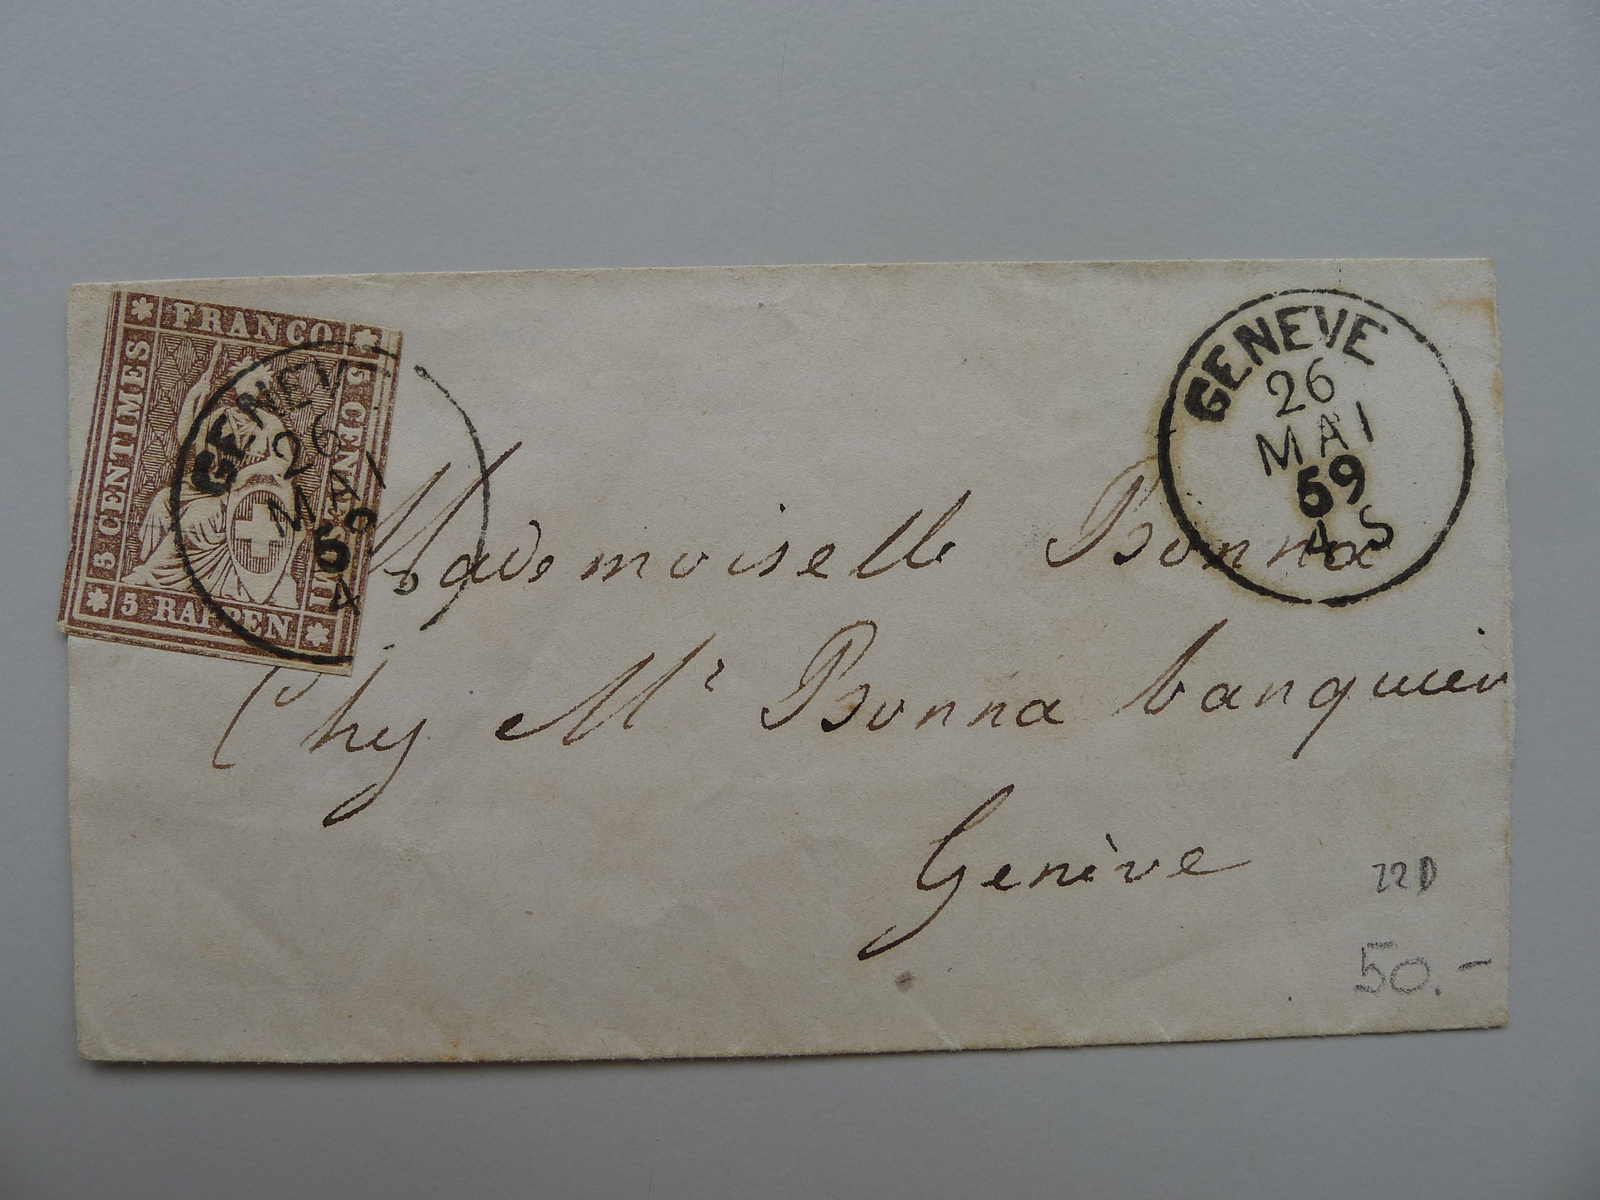 FRANCO
5 CENTIMES
5 RAPPEN
GENEVE
26
MAI
59
4 S
GENEVE
26
MAI
59
4 S
Mademoiselle Bonna
Chez Mr Bonna banquier
Genève
22D
50.-